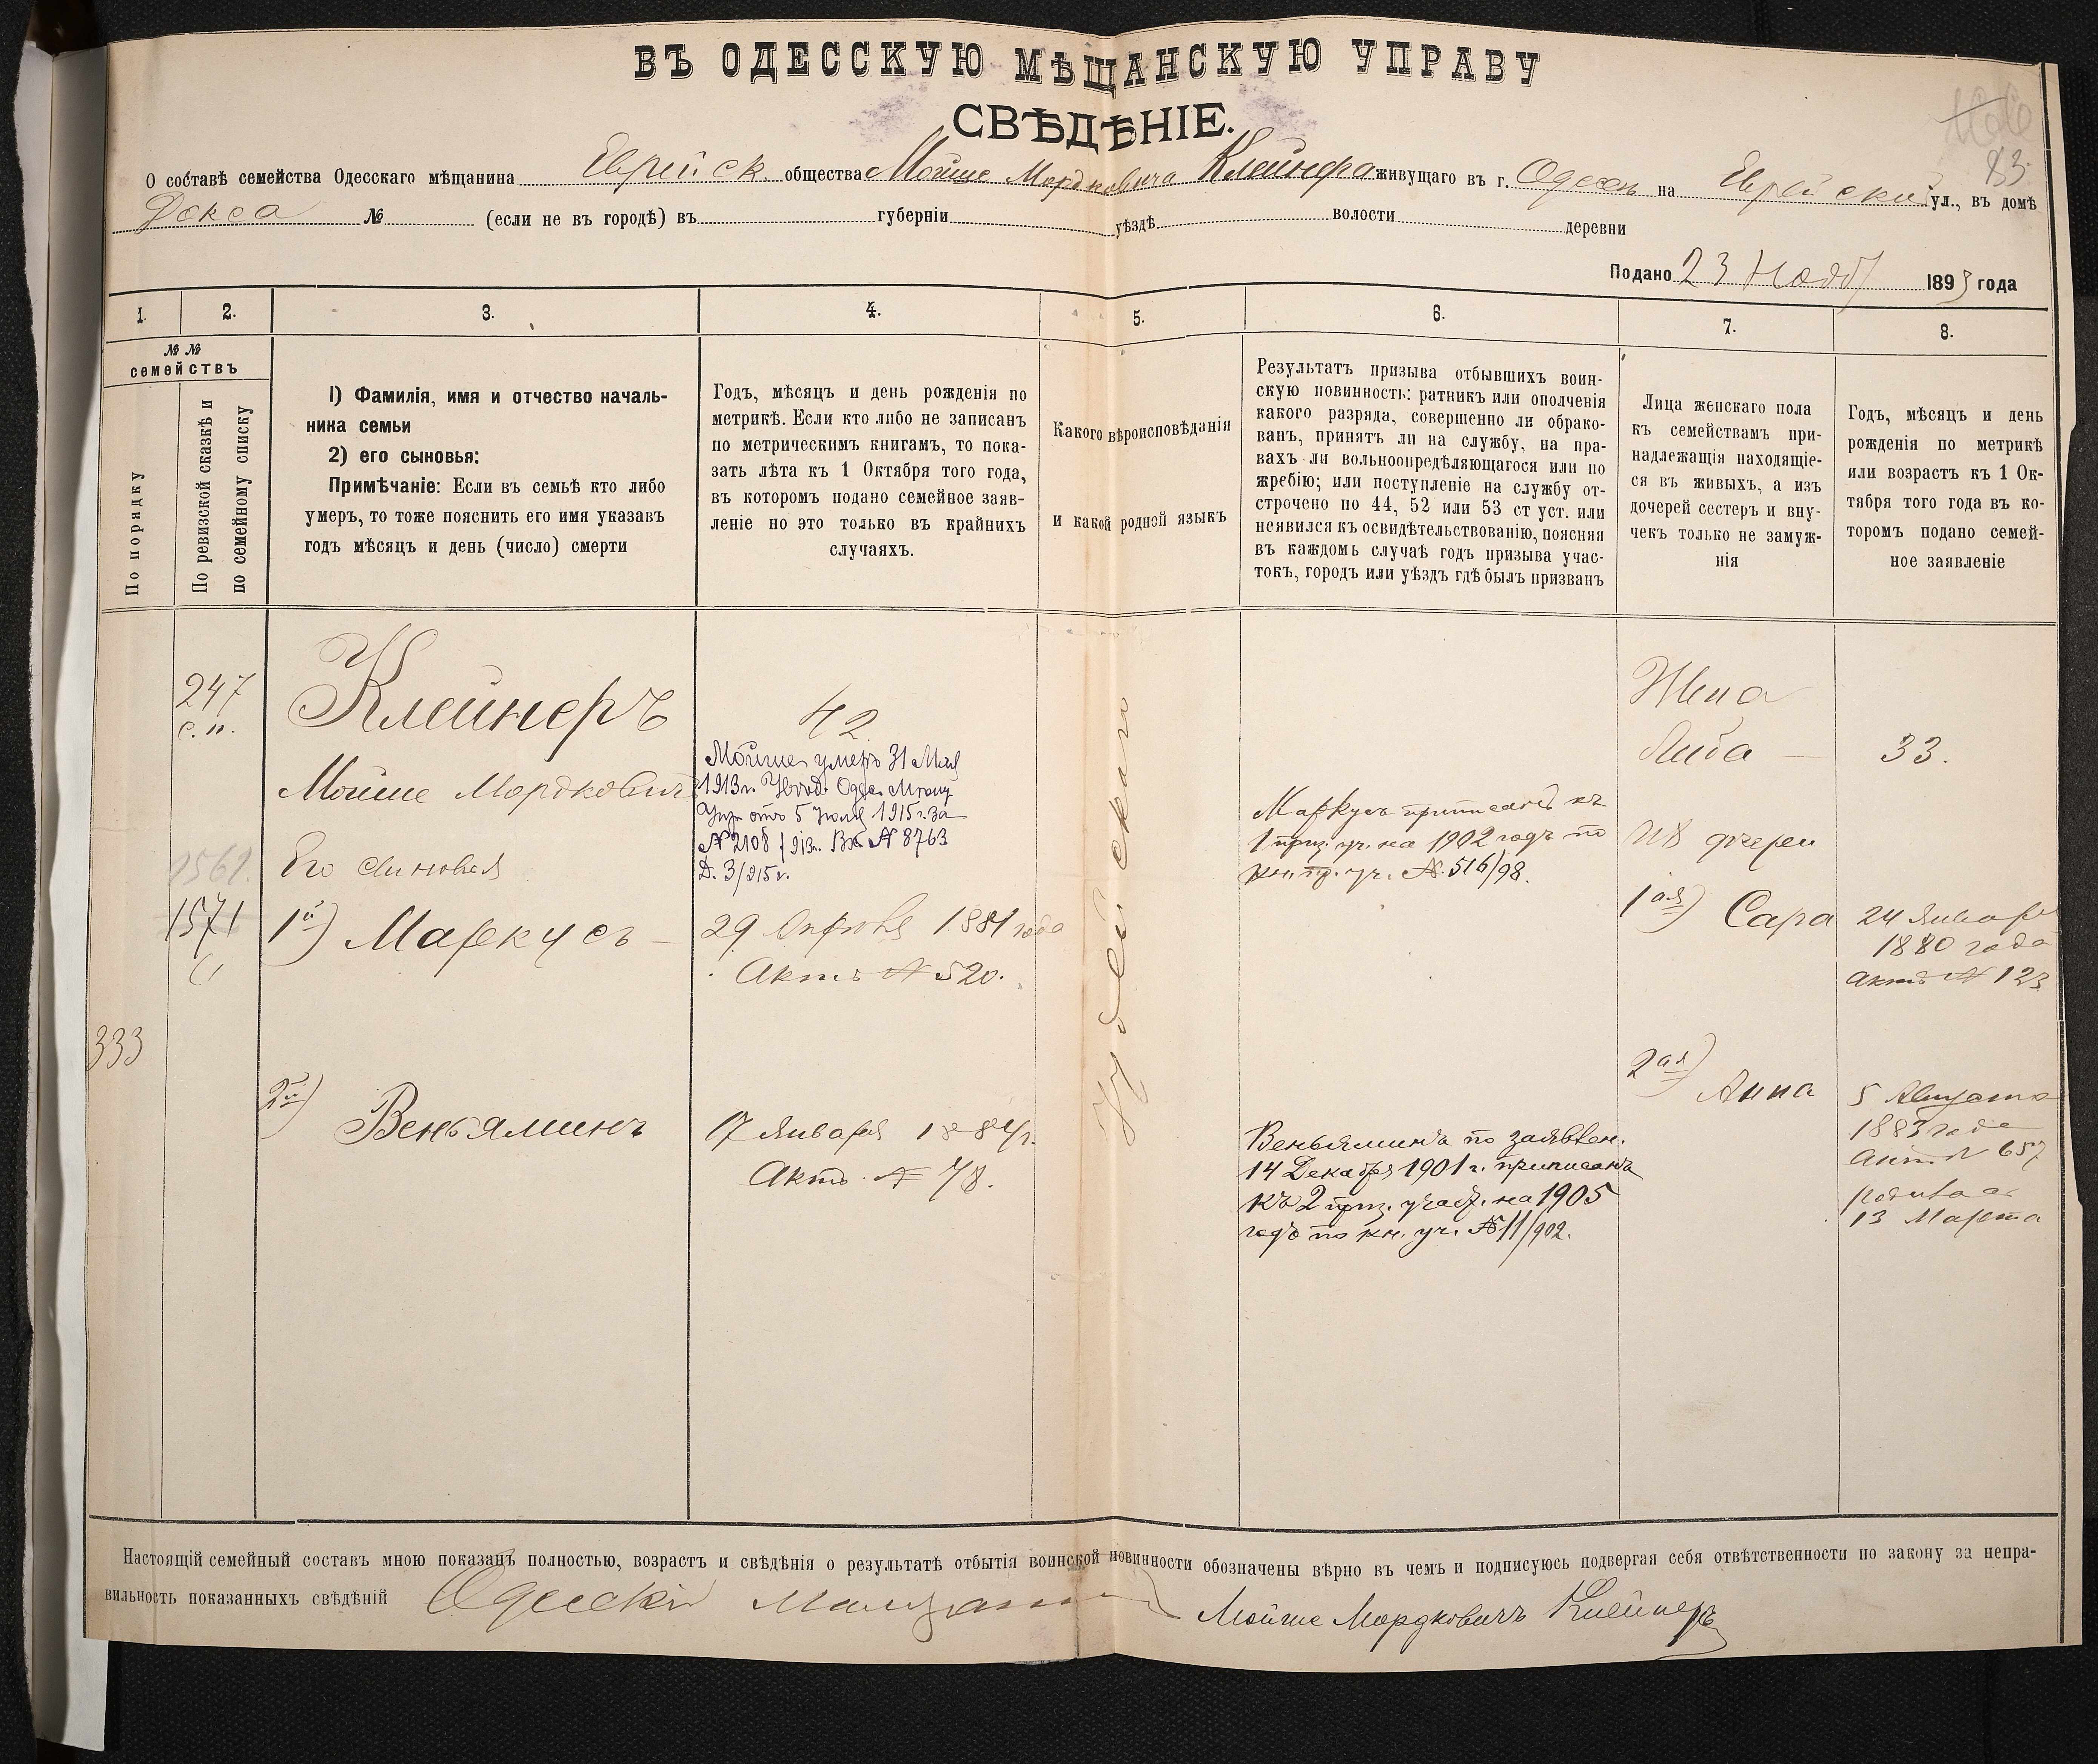 ВЪ ОДЕССКУЮ МѢЩАНСКУЮ УПРАВУ
СВѢДѢНІЕ.
83.
О составѣ семейства Одесскаго мѣщанина Еврейск. общества Мойше Мордковича Клейнера живущаго въ г. Одессѣ на Еврейской ул., въ домѣ
№ (если не въ городѣ) въ губерніи уѣздѣ волости деревни
Подано 23 Нояб 1893 года
1. 2. 3. 4. 5. 6. 7. 8.
№ №
семействъ
По порядку
По ревизской сказкѣ и
по семейному списку
1) Фамилія, имя и отчество началь-
ника семьи
2) его сыновья:
Примѣчаніе: Если въ семьѣ кто либо
умеръ, то тоже пояснить его имя указавъ
годъ мѣсяцъ и день (число) смерти
Годъ, мѣсяцъ и день рожденія по
метрикѣ. Если кто либо не записанъ
по метрическимъ книгамъ, то пока-
зать лѣта къ 1 Октября того года,
въ которомъ подано семейное заяв-
леніе но это только въ крайнихъ
случаяхъ.
Какого вѣроисповѣданія
и какой родной языкъ
Результатъ призыва отбывшихъ воин-
скую повинность: ратникъ или ополченія
какого разряда, совершенно ли обрако-
ванъ, принятъ ли на службу, на пра-
вахъ ли вольноопредѣляющагося или по
жребію; или поступленіе на службу от-
строчено по 44, 52 или 53 ст уст. или
неявился къ освидѣтельствованію, поясняя
въ каждомъ случаѣ годъ призыва учас-
токъ, городъ или уѣздъ гдѣ былъ призванъ
Лица женскаго пола
къ семействамъ при-
надлежащія находящіе-
ся въ живыхъ, а изъ
дочерей сестеръ и вну-
чекъ только не замуж-
нія
Годъ, мѣсяцъ и день
рожденія по метрикѣ
или возрастъ къ 1 Ок-
тября того года въ ко-
торомъ подано семей-
ное заявленіе
247
с. п.
Клейнеръ
Мойше Мордковичъ
42
Мойше умеръ 31 Мая
1913 г. Увѣд. Одес. Мѣщ.
Упр отъ 5 Іюля 1915 г. за
№ 2108/913. Вх. № 8763
Д. 3/915 г.
Іудейскаго
Жена
Либа — 33.
1561.
Его сыновья
1571
1й) Маркусъ —
29 Апрѣля 1881 года
Актъ № 520.
Маркусъ приписанъ къ
1 приз. уч. на 1902 годъ по
кн. пр. уч. № 516/98.
Ихъ дочери
1ая) Сара
24 Января
1880 года
Актъ № 123
333
2й) Веньяминъ
17 Января 1884 г.
Актъ № 78.
Веньяминъ по заявлен.
14 Декабря 1901 г. приписанъ
къ 2 приз. участ. на 1905
годъ по кн. уч. № 11/902.
2ая) Анна
5 Августа
1883 года
Актъ № 657
родилась
13 Марта
Настоящій семейный составъ мною показанъ полностью, возрастъ и свѣдѣнія о результатѣ отбытія воинской повинности обозначены вѣрно въ чемъ и подписуюсь подвергая себя отвѣтственности по закону за непра-
вильность показанныхъ свѣдѣній Одесскій Мѣщанинъ Мойше Мордковичъ Клейнеръ